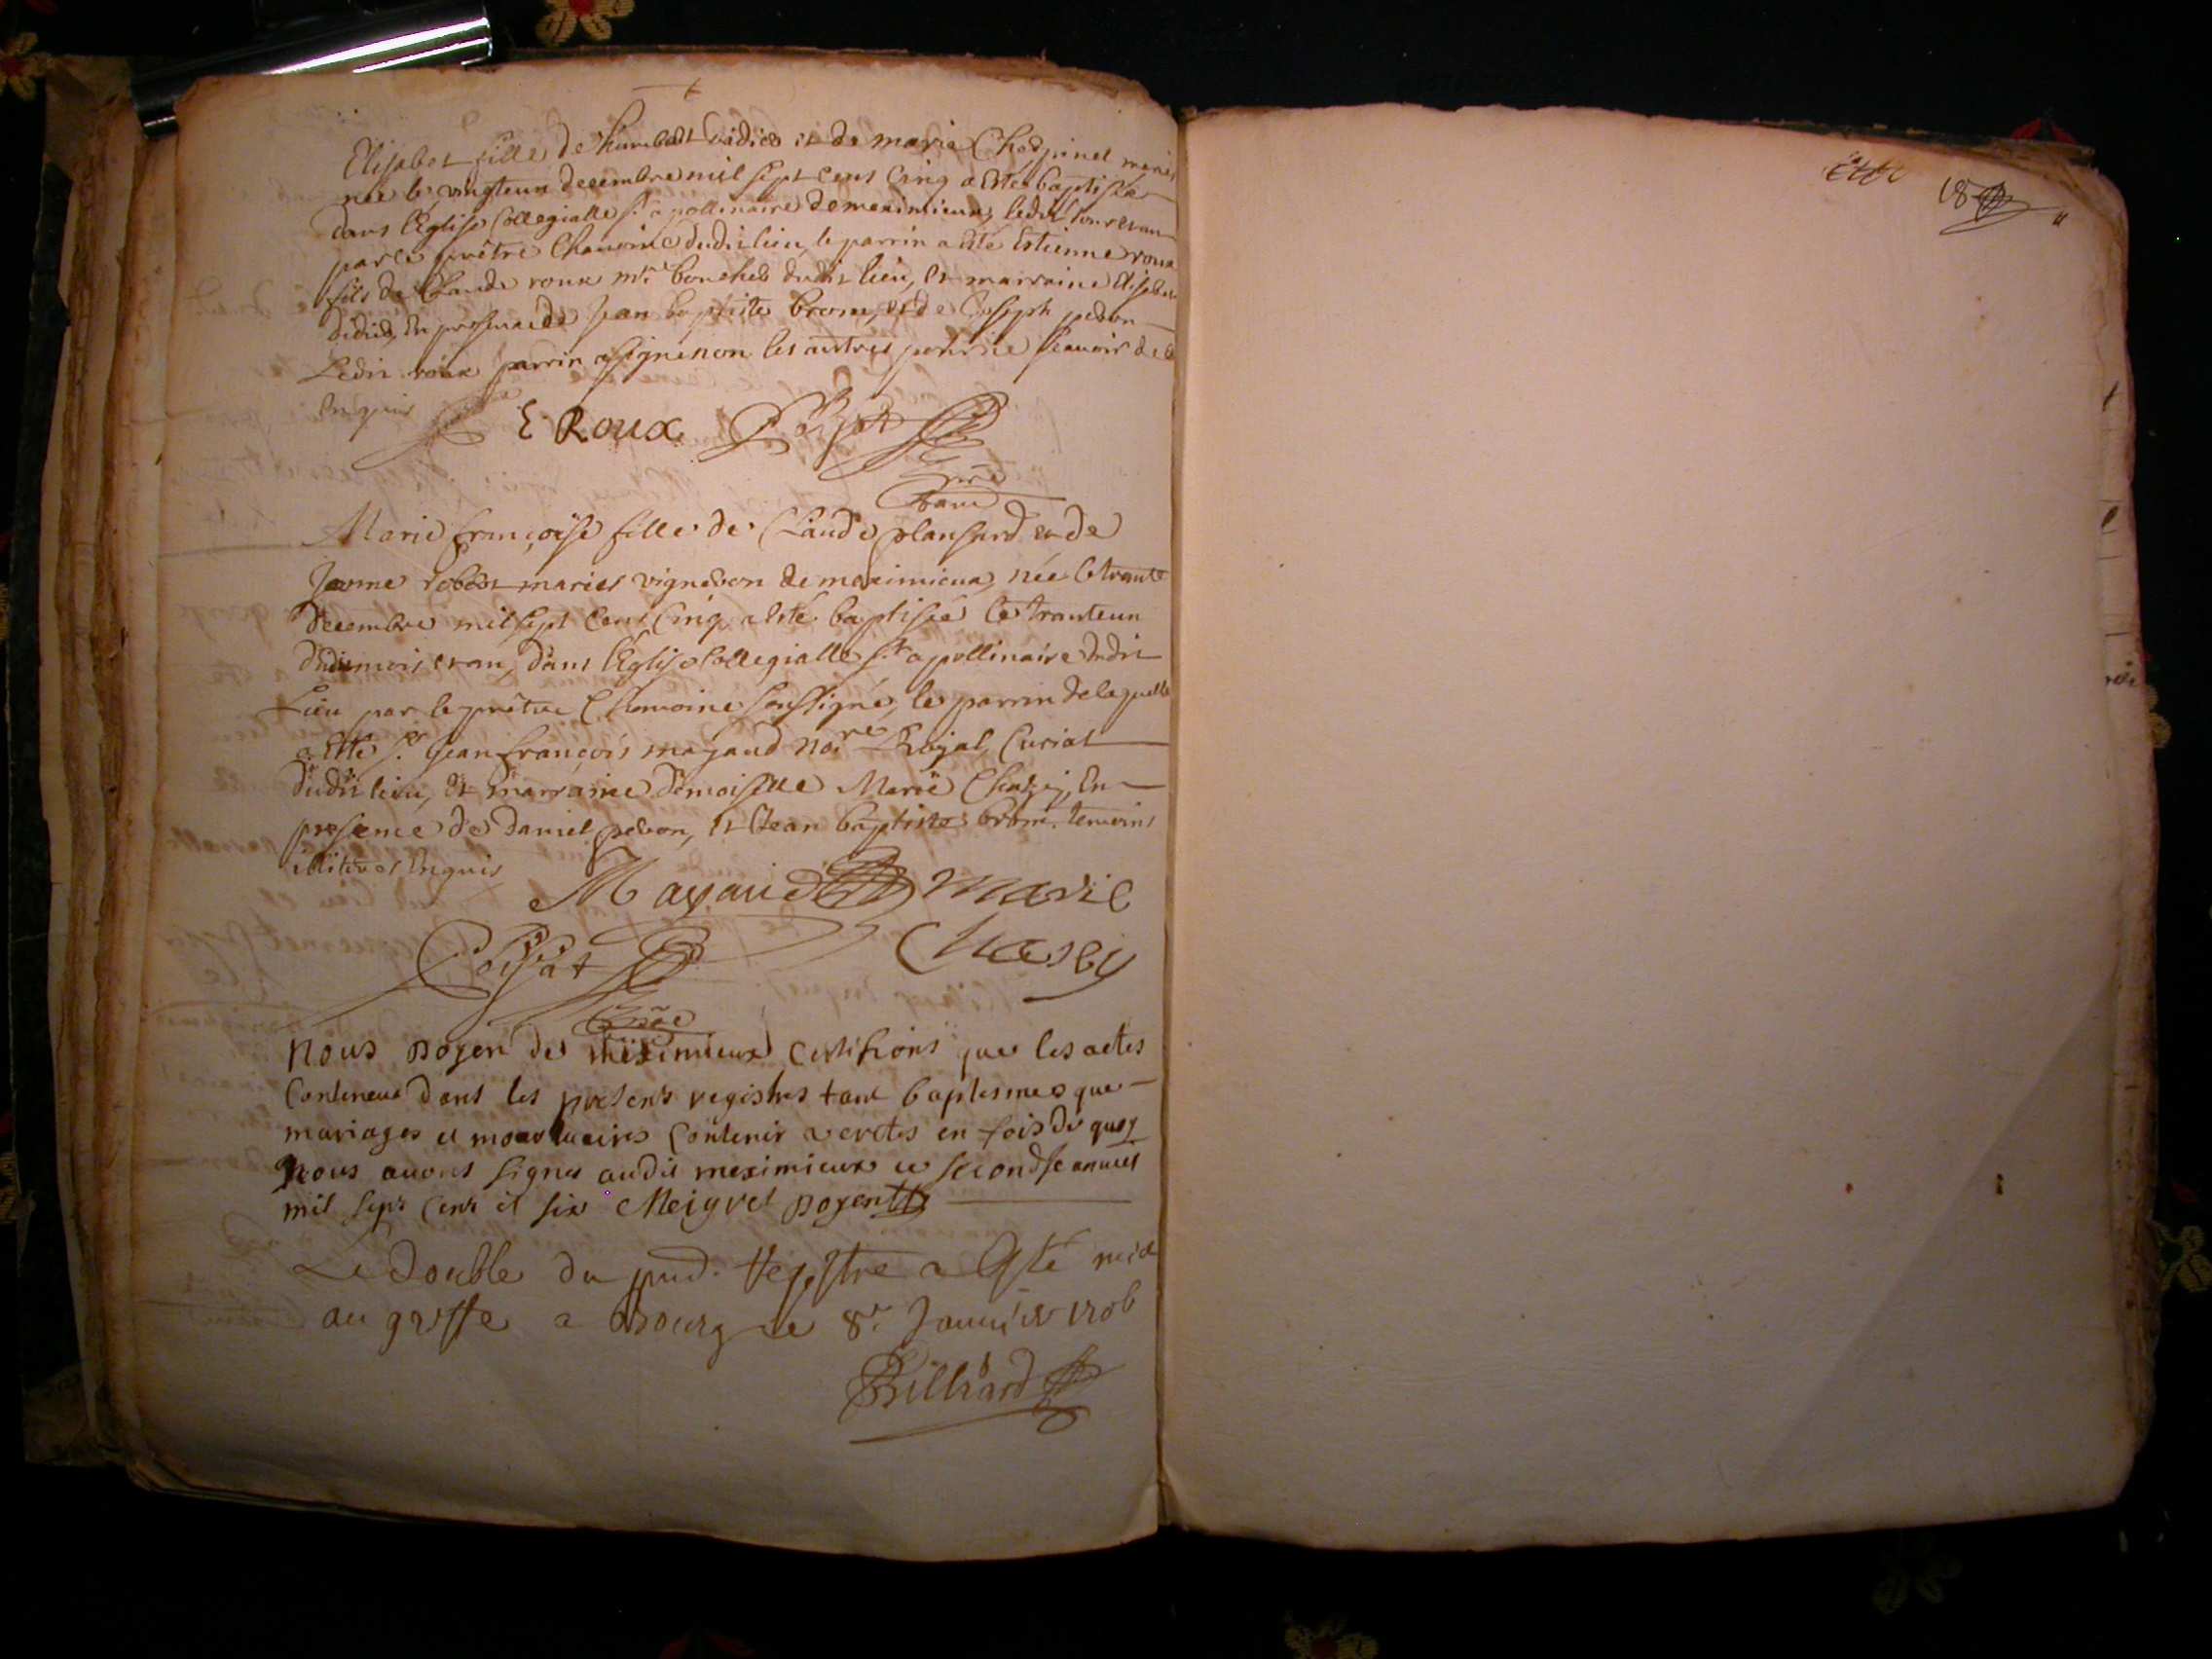 Elisabet fille de humbert et de marie mariés
née le vingteun decembre mil sept cens cinq a esté baptisée
dans l'Eglise Collegialle st apollinaire de meximieux ledit jour et an
par le prêtre Chanoine dudit lieu, le parrin a esté Estienne roux
fils de Claude roux mtre boucher dudit lieu, et marraine Elisabet
didier, En presence de Jean baptiste brom, et de Joseph pedron
Ledit roux parrin a signé non les autres pour ne scauoir de ce
Enquis
E Roux
Marie françoise fille de Claude plansard et de
Jeanne robert mariés vigneron de meximieux, née le trante
decembre mil sept cens cinq a esté baptisée le tranteun
dudit mois et an, dans l'Eglise Collegialle st apollinaire dudit
Lieu par le prêtre Chanoine soussigné, le parrin de laquelle
a esté sr Jean françois mayaud nore Royal, Curial
dudit lieu, et marraine demoiselle Marie Chasey, En
presence de daniel pedron, et Jean baptiste brom. temoins
illiteres Enquis
Mayaud marie
Poissat Chasey
nous doyen de meximieux certifions que les actes
Conteneus dans les presents registres tant baptesmes que
mariages et mortuaires contenir verités en foid de quoy
Nous auons signes audit meximieux ce second januier
mil sept cens et six Meigret doyen
Le double du pnt. Registre a Esté mis
au greffe a Bourg le 8e. Januier 1706
Billiard
18